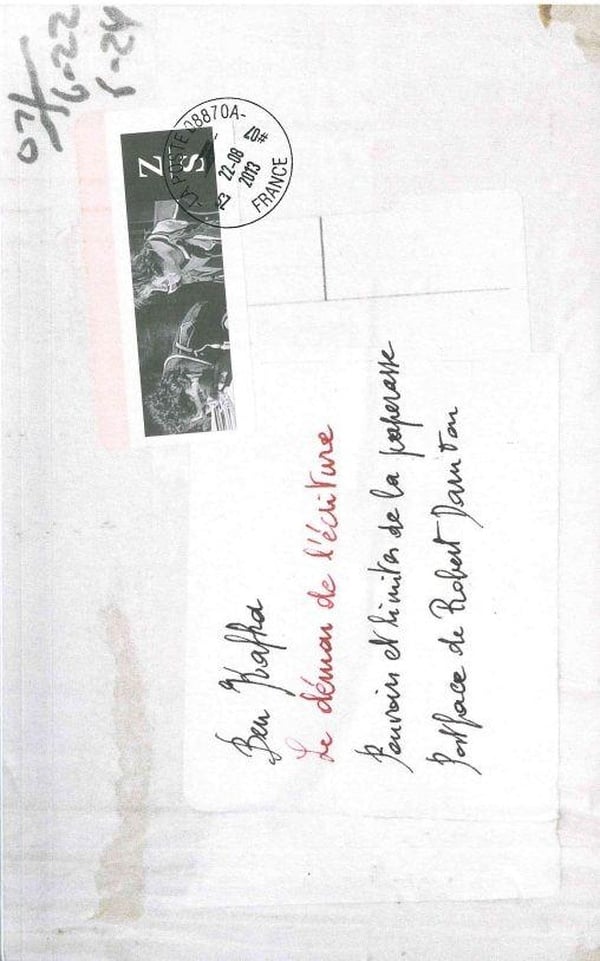 6-22
Z
S
LA POSTE 08870A-
22-08
2013
FRANCE
Ben Kafka
Le démon de l'écriture
Pouvoirs et limites de la paperasse
Postface de Robert Darnton